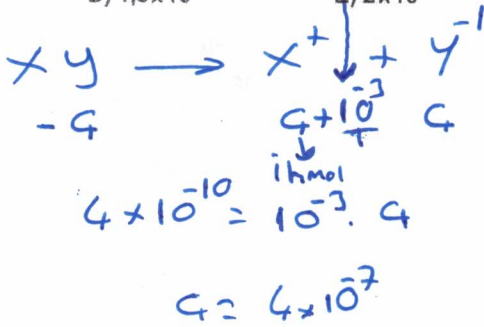 xy → x⁺ + y⁻¹
- G G + 10⁻³ G
T
ihmol
4 × 10⁻¹⁰ = 10⁻³ . G
G = 4 × 10⁻⁷